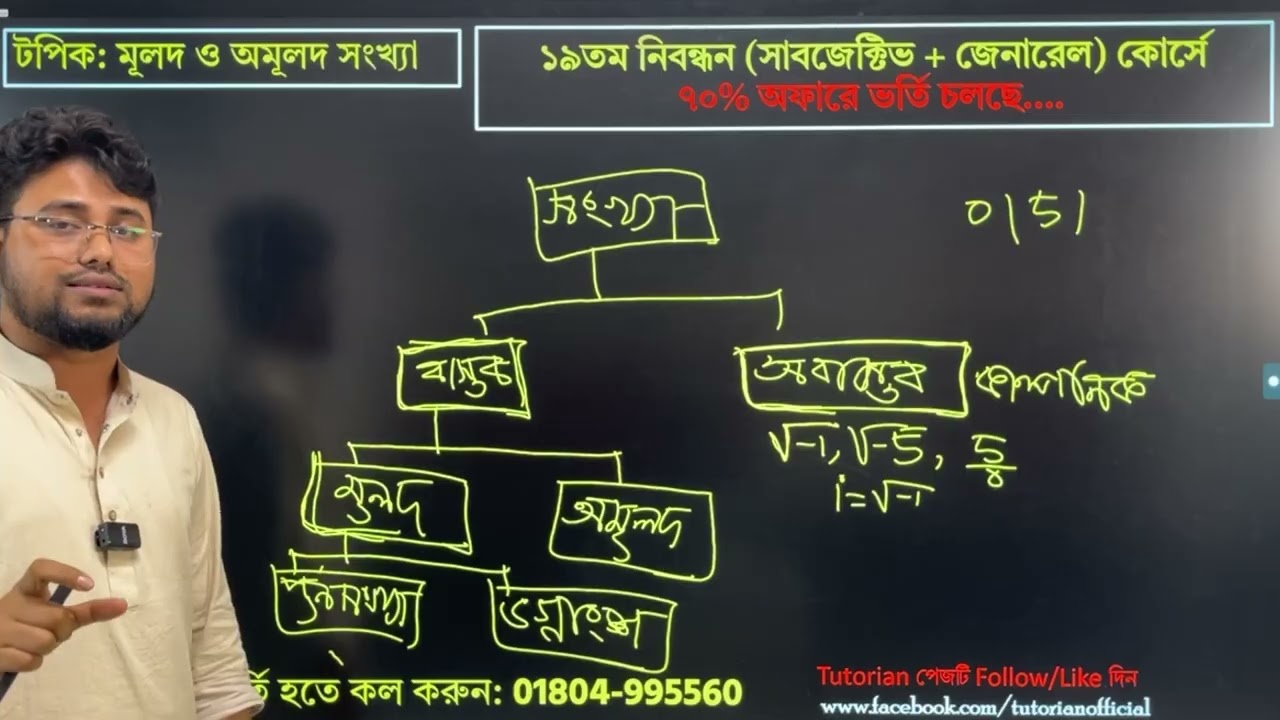 টপিক: মূলদ ও অমূলদ সংখ্যা
১৯তম নিবন্ধন (সাবজেক্টিভ + জেনারেল) কোর্সে
৭০% অফারে ভর্তি চলছে....
সংখ্যা
0151
বাস্তব
অবাস্তব কাল্পনিক
√-1, √-5, 5/0
i=√-1
মূলদ
অমূলদ
পূর্নসংখ্যা
ভগ্নাংশ
র্তি হতে কল করুন: 01804-995560
Tutorian পেজটি Follow/Like দিন
www.facebook.com/tutorianofficial